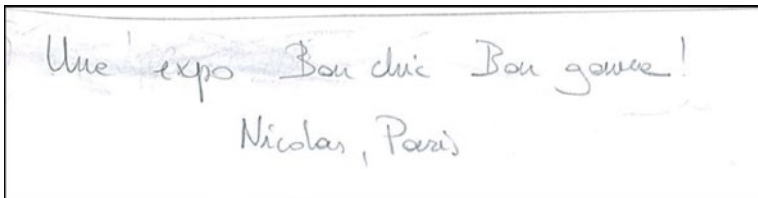 Une expo Bon chic Bon genre!
Nicolas, Paris